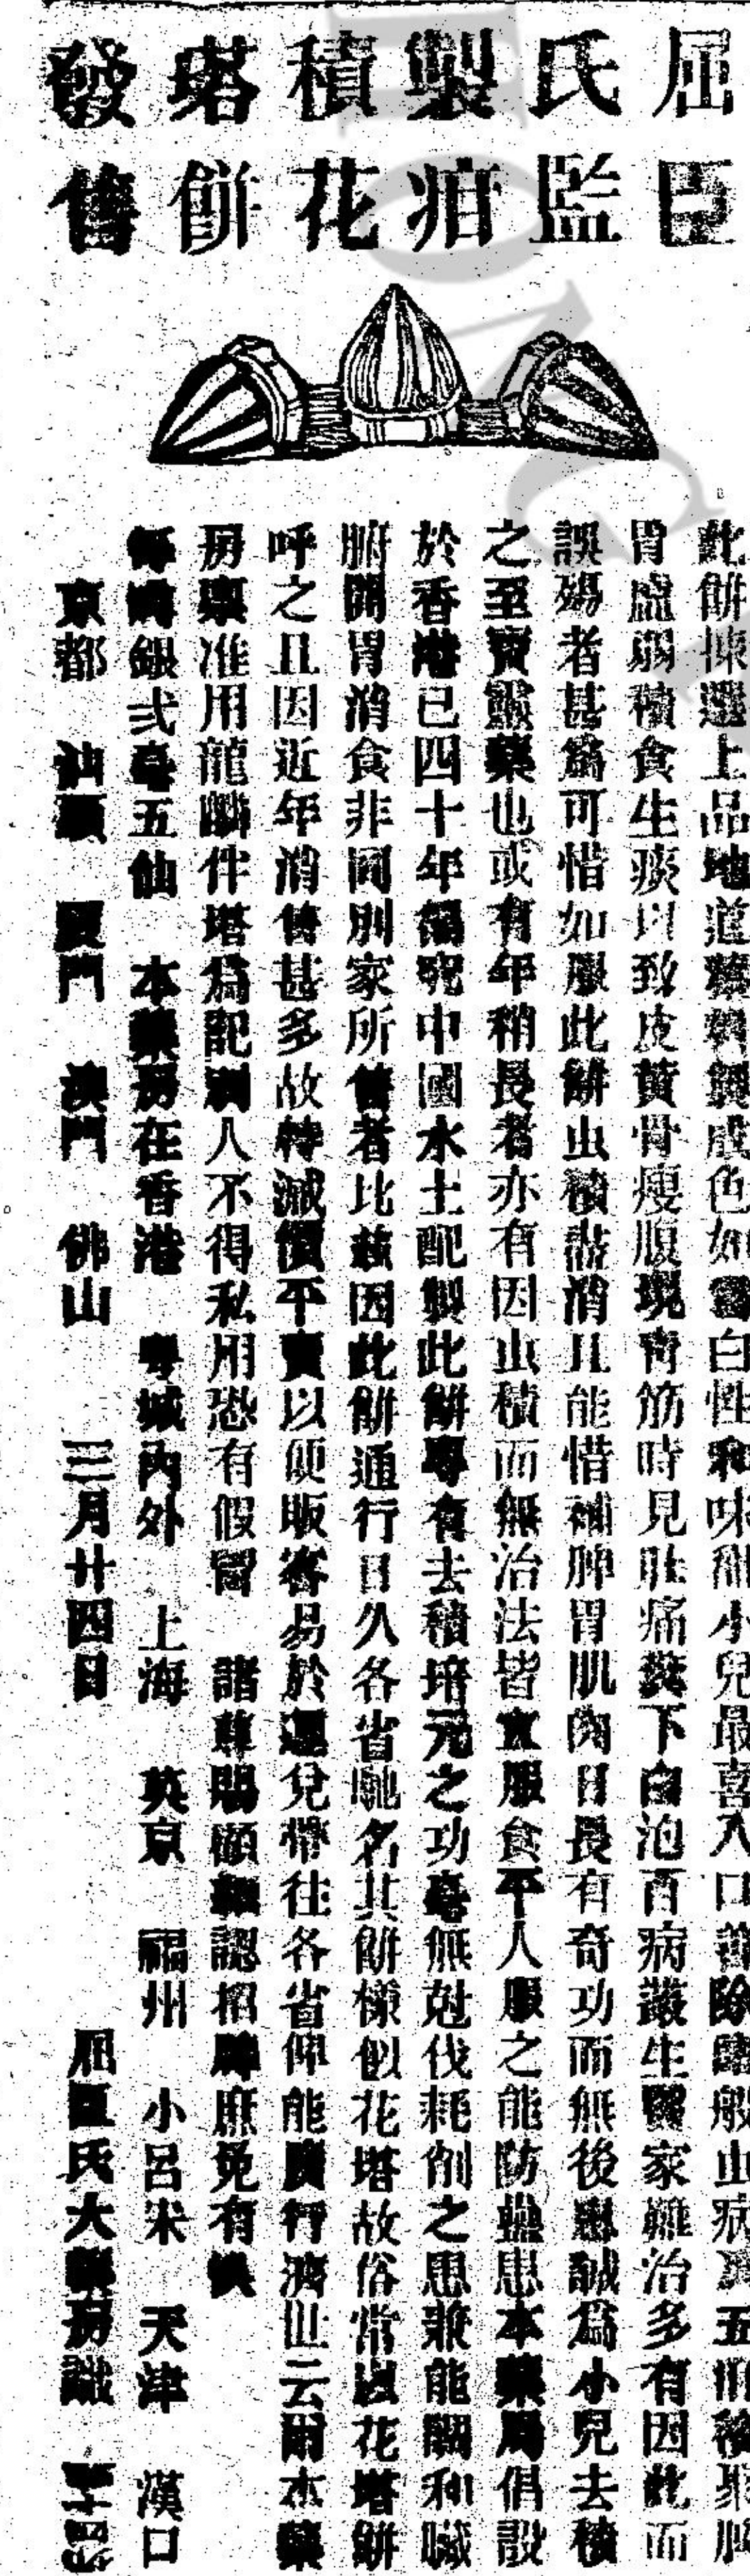 屈臣氏監製疳積花塔餅發售
此餅揀選上品地道藥料製成色如雪白性和味甜小兒最喜入口善除諸般虫病與五疳積聚脾
胃虛弱積食生痰以致皮黃骨瘦腹現青筋時見肚痛糞下白泡百病叢生醫家難治多有因此而
誤殤者甚為可惜如服此餅虫積盡消且能借補脾胃肌肉日長有奇功而無後患誠為小兒去積
之至寶靈藥也或有年稍長者亦有因虫積而無治法皆宜服食平人服之能防患本藥局倡設
於香港已四十年究中國水土配製此餅專有去積培元之功毫無尅伐耗削之患兼能調和臟
腑開胃消食非同別家所售者比茲因此餅通行日久各省馳名其餅樣似花塔故俗常以花塔餅
呼之且因近年消售甚多故特減價平賣以便販客易於運兌帶往各省俾能廣行濟世云爾本藥
房稟准用龍麟伴塔為記別人不得私用恐有假冒 諸尊賜顧認招牌庶免有悞
每樽銀弍毫五仙 本藥房在香港 粵城內外 上海 英京 福州 小呂宋 天津 漢口
京都 汕頭 厦門 澳門 佛山 三月廿四日 屈臣氏大藥房識